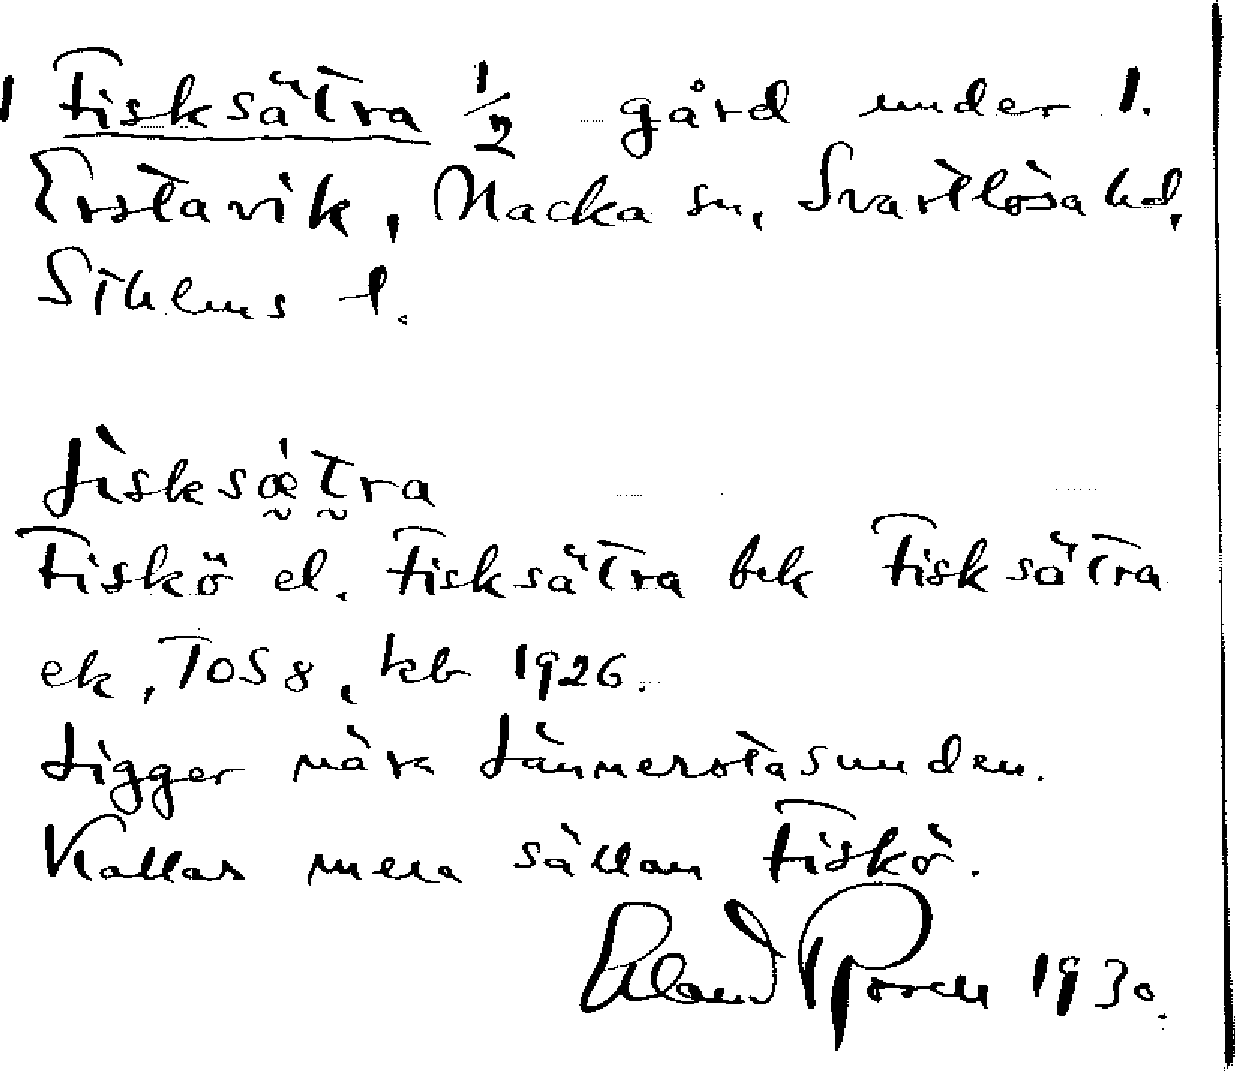 1 Fisksätra 1/2 gård under 1.
Erstavik, Nacka sn, Svartlösa hd,
Sthlms l.
fisksæ̀tra
Fiskö el. Fisksätra bek Fisksätra
ek, TOS 8, kb 1926.
Ligger nära Lännerstasunden.
Kallas mera sällan Fiskö.
Erland Rosell 1930.